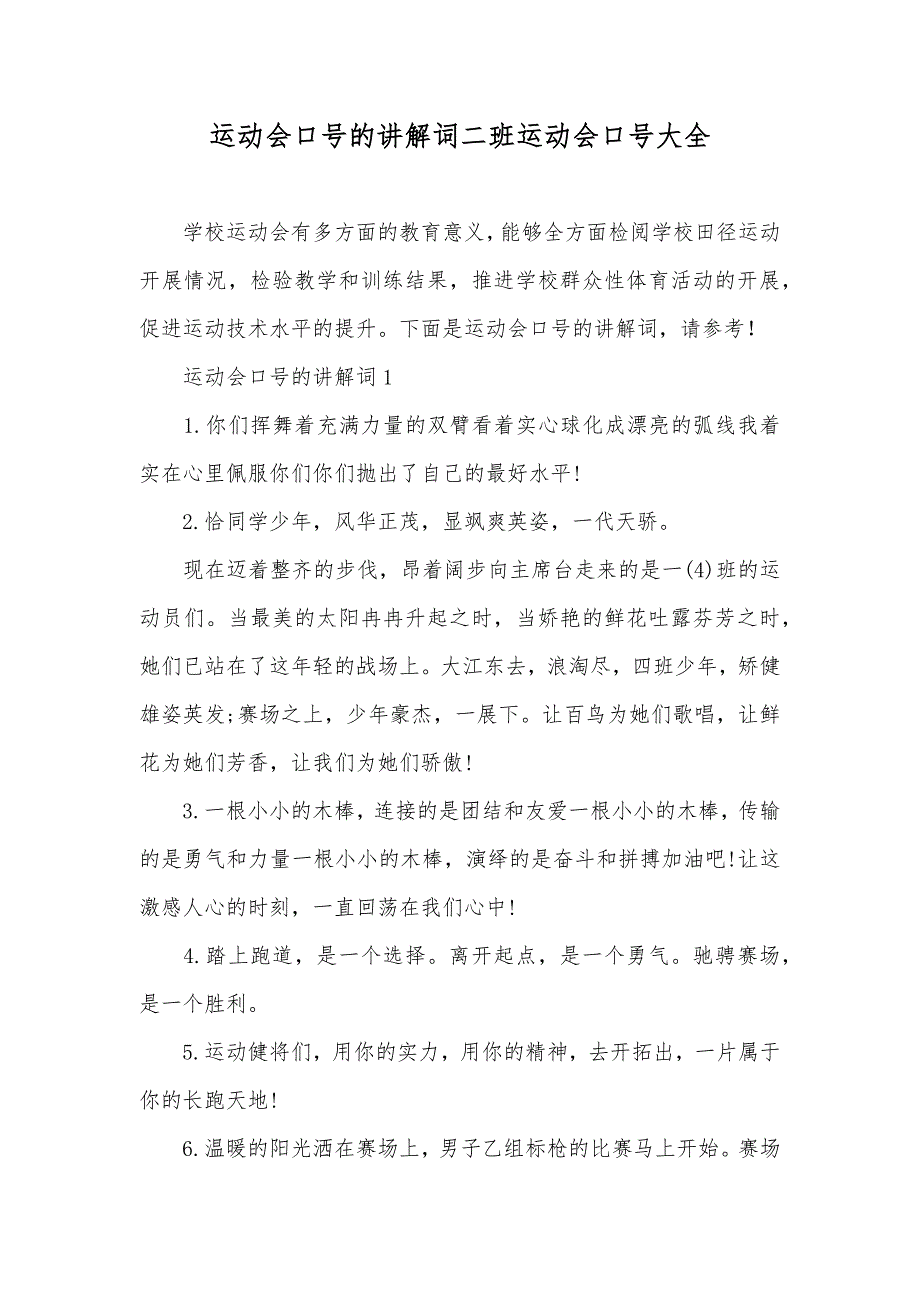 运动会口号的讲解词二班运动会口号大全
学校运动会有多方面的教育意义，能够全方面检阅学校田径运动
开展情况，检验教学和训练结果，推进学校群众性体育活动的开展，
促进运动技术水平的提升。下面是运动会口号的讲解词，请参考！
运动会口号的讲解词 1
1.你们挥舞着充满力量的双臂看着实心球化成漂亮的弧线我着
实在心里佩服你们你们抛出了自己的最好水平!
2.恰同学少年，风华正茂，显飒爽英姿，一代天骄。
现在迈着整齐的步伐，昂着阔步向主席台走来的是一(4)班的运
动员们。当最美的太阳冉冉升起之时，当娇艳的鲜花吐露芬芳之时，
她们已站在了这年轻的战场上。大江东去，浪淘尽，四班少年，矫健
雄姿英发;赛场之上，少年豪杰，一展下。让百鸟为她们歌唱，让鲜
花为她们芳香，让我们为她们骄傲!
3.一根小小的木棒，连接的是团结和友爱一根小小的木棒，传输
的是勇气和力量一根小小的木棒，演绎的是奋斗和拼搏加油吧!让这
激感人心的时刻，一直回荡在我们心中!
4.踏上跑道，是一个选择。离开起点，是一个勇气。驰骋赛场，
是一个胜利。
5.运动健将们，用你的实力，用你的精神，去开拓出，一片属于
你的长跑天地!
6.温暖的阳光洒在赛场上，男子乙组标枪的比赛马上开始。赛场